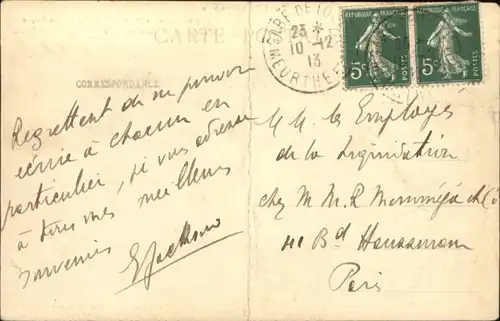 CARTE POSTALE
CORRESPONDANCE
GARE DE
23 *
10 - 12
13
MEURTHE
RÉPUBLIQUE FRANÇAISE
5c POSTES
RÉPUBLIQUE FRANÇAISE
5c POSTES
Regrettant de ne pouvoir
écrire à chacun en
particulier, je vous adresse
à tous mes meilleurs
souvenirs
M.M. les Employés
de la Liquidation
chez M M. R et Co
41 Bd Haussmann
Paris